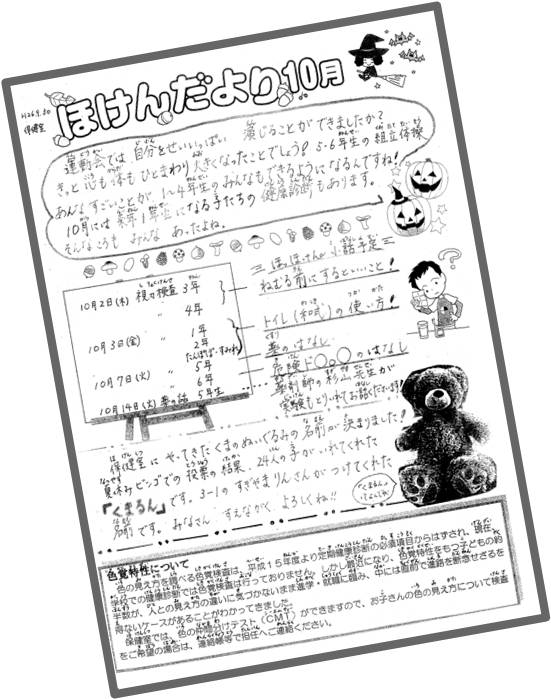 H26.9.30
保健室
ほけんだより10月
運動会では 自分をせいいっぱい 演じることができましたか？
きっと心も体もひとまわり大きくなったことでしょう！ 5・6年生の組立体操
あんなすごいことが 1~4年生のみんなもできるようになるんですね！
10月には来年1年生になる子たちの健康診断もあります。
そんなころも みんな あったよね。
10月2日(木) 視力検査 3年
〃 4年
10月3日(金) 〃 1年
〃 2年
たんぽぽ・すみれ
10月7日(火) 〃 5年
〃 6年
10月14日(火) 薬の話 5年生
ほほけんが 小話予定
ねむる前にするといいこと！
トイレ(和式)の使い方！
薬のはなし
危険ド○○○のはなし
薬剤師の杉山先生が
実験もとりいれてお話くださいます！
保健室にやってきたくまのぬいぐるみの名前が決まりました！
夏休みビンゴでの投票の結果、24人の子がいれてくれた
「くまるん」です。3-1のすぎやまりんさんがつけてくれた
名前です。みなさん すえながく よろしくね!!
色覚特性について
色の見え方を調べる色覚検査は、平成15年度より定期健康診断の必須項目からはずされ、現在、
学校での健康診断では色覚検査は行っておりません。しかし最近になり、色覚特性をもつ子どもの約
半数が、人との見え方の違いに気づかないまま進学・就職に臨み、中には直前で進路を断念せざるを
得ないケースがあることがわかってきました。
保健室では、色の仲間分けテスト(CMT)ができますので、お子さんの色の見え方について検査
をご希望の場合は、連絡帳等で担任へご連絡ください。